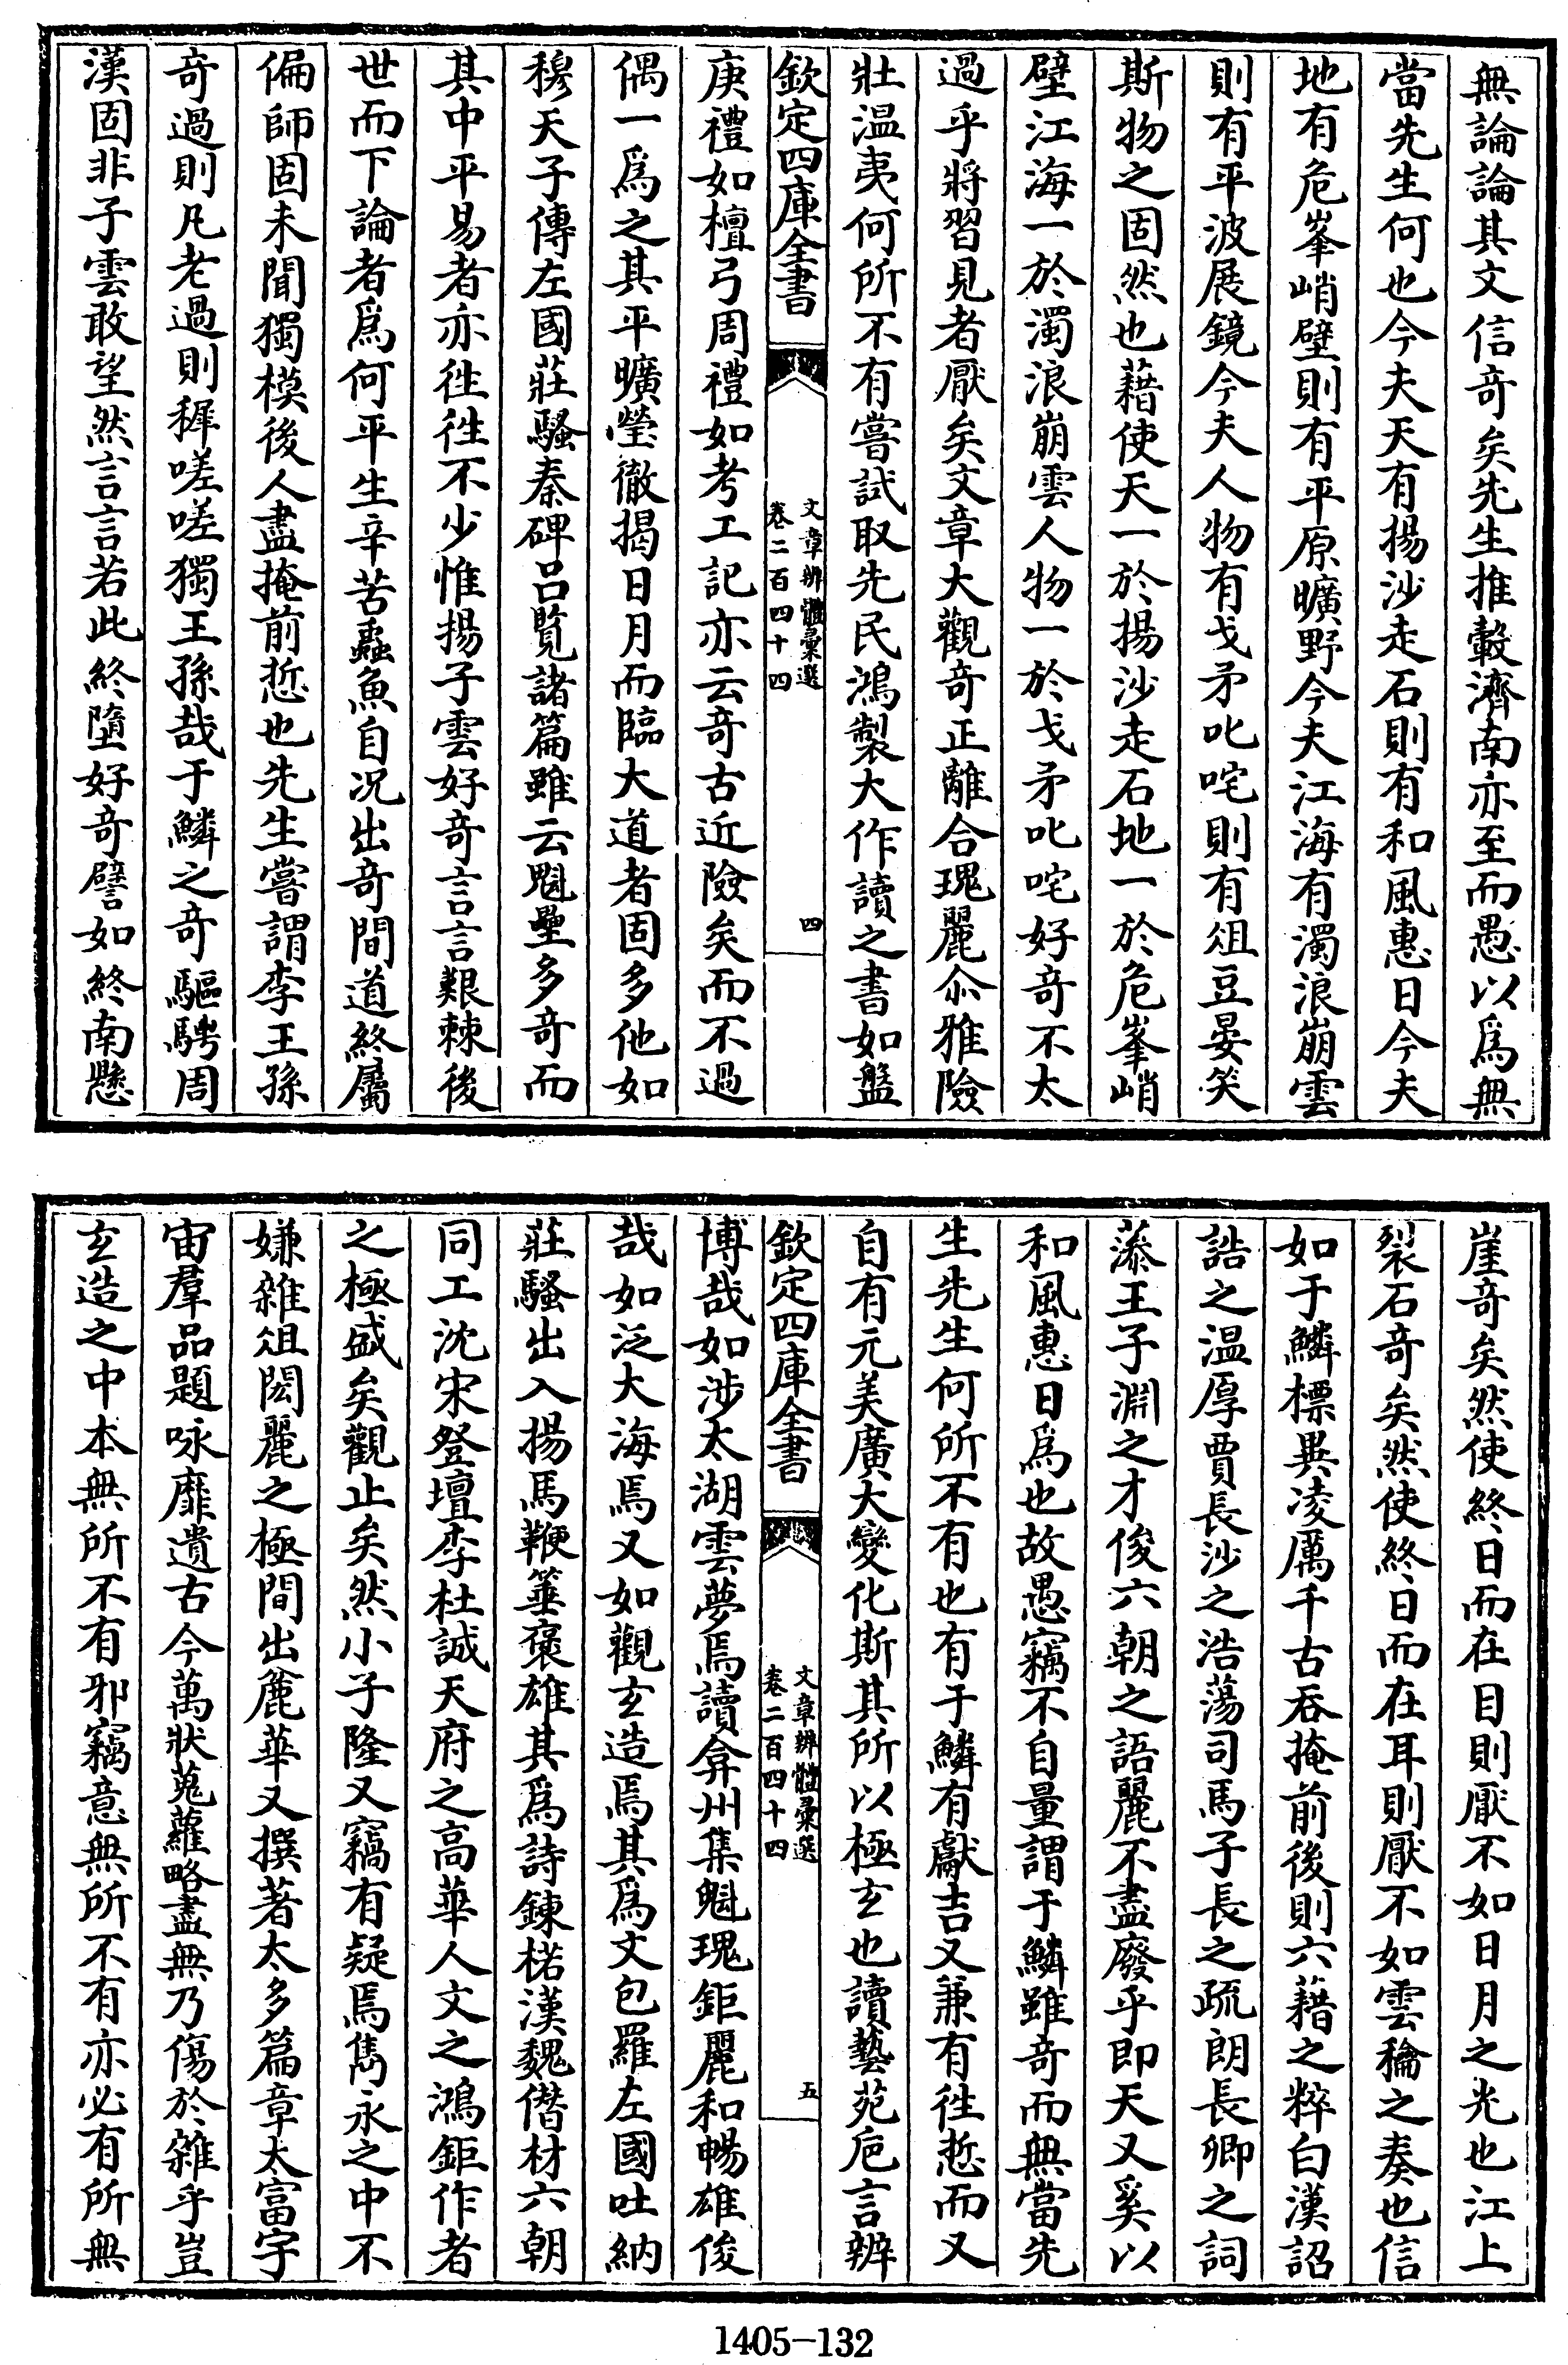 無論論其文信奇矣先生推轂濟南亦至而愚以爲無
當先生何也今夫天有揚沙走石則有和風惠日今夫
地有危峯峭壁則有平原曠野今夫江海有濁浪崩雲
則有平波展鏡今夫人物有戈矛叱咤則有俎豆晏笑
斯物之固然也藉使天一於揚沙走石地一於危峯峭
壁江海一於濁浪崩雲人物一於戈矛叱咤好奇不太
過乎將習見者厭矣文章大觀奇正離合瑰麗尒雅險
壯温夷何所不有嘗試取先民鴻製大作讀之書如盤
欽定四庫全書
文章辨體彙選
卷二百四十四
四
庚禮如檀弓周禮如考工記亦云奇古近險矣而不過
偶一爲之其平曠瑩徹揭日月而臨大道者固多他如
穆天子傳左國莊騷秦碑呂覽諸篇雖云魁壘多奇而
其中平易者亦徃徃不少惟揚子雲好奇言言艱棘後
世而下論者爲何平生辛苦蟲魚自况出奇間道終屬
偏師固未聞獨模後人盡掩前悊也先生嘗謂李王孫
奇過則凡老過則穉嗟嗟獨王孫哉于鱗之奇驅騁周
漢固非子雲敢望然言言若此終墮好奇譬如終南懸
崖奇矣然使終日而在目則厭不如日月之光也江上
裂石奇矣然使終日而在耳則厭不如雲籥之奏也信
如于鱗標異凌厲千古吞掩前後則六藉之粹白漢詔
誥之温厚賈長沙之浩蕩司馬子長之疏朗長卿之詞
藻王子淵之才俊六朝之語麗不盡廢乎即天又奚以
和風惠日爲也故愚竊不自量謂于鱗雖奇而無當先
生先生何所不有也有于鱗有獻吉又兼有徃悊而又
自有元美廣大變化斯其所以極玄也讀藝苑巵言辨
欽定四庫全書
文章辨體彙選
卷二百四十四
五
博哉如涉太湖雲夢焉讀弇州集魁瑰鉅麗和暢雄俊
哉如泛大海焉又如觀玄造焉其爲文包羅左國吐納
莊騷出入揚馬鞭箠褒雄其爲詩鍊楉漢魏僭材六朝
同工沈宋登壇李杜誠天府之高華人文之鴻鉅作者
之極盛矣觀止矣然小子隆又竊有疑焉雋永之中不
嫌雜俎閎麗之極間出麄華又撰著太多篇章太富宇
宙羣品題咏靡遺古今萬狀蒐羅略盡無乃傷於雜乎豈
玄造之中本無所不有邪竊意無所不有亦必有所無
1405-132